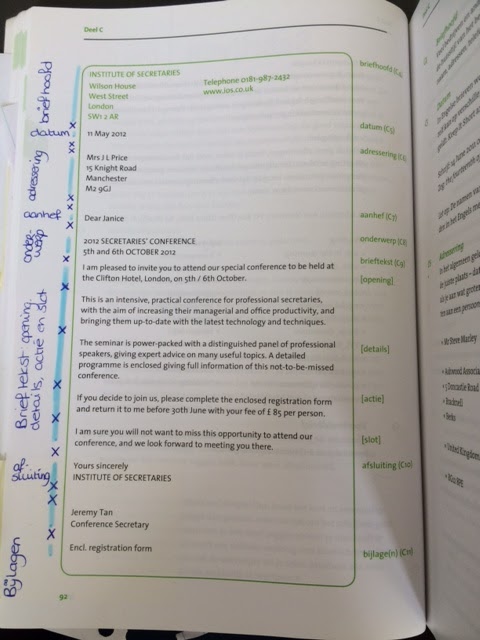 Deel C
INSTITUTE OF SECRETARIES
Wilson House
West Street
London
SW1 2 AR
Telephone 0181-987-2432
www.ios.co.uk
briefhoofd (C4)
11 May 2012
datum (C5)
Mrs J L Price
15 Knight Road
Manchester
M2 9GJ
adressering (C6)
Dear Janice
aanhef (C7)
2012 SECRETARIES' CONFERENCE
5th and 6th OCTOBER 2012
onderwerp (C8)
I am pleased to invite you to attend our special conference to be held at
the Clifton Hotel, London, on 5th / 6th October.
brieftekst (C9)
[opening]
This is an intensive, practical conference for professional secretaries,
with the aim of increasing their managerial and office productivity, and
bringing them up-to-date with the latest technology and techniques.
The seminar is power-packed with a distinguished panel of professional
speakers, giving expert advice on many useful topics. A detailed
programme is enclosed giving full information of this not-to-be-missed
conference.
[details]
If you decide to join us, please complete the enclosed registration form
and return it to me before 30th June with your fee of £ 85 per person.
[actie]
I am sure you will not want to miss this opportunity to attend our
conference, and we look forward to meeting you there.
[slot]
Yours sincerely
INSTITUTE OF SECRETARIES
afsluiting (C10)
Jeremy Tan
Conference Secretary
Encl. registration form
bijlage(n) (C11)
92
briefhoofd
datum
adressering
aanhef
onder-
werp
Brieftekst opening,
details, actie en slot
af-
sluiting
Bijlagen
Briefhoofd
Datum
Adressering
• Mr Steve Marley
• Ashwood Associa
• Bracknell
• Berks